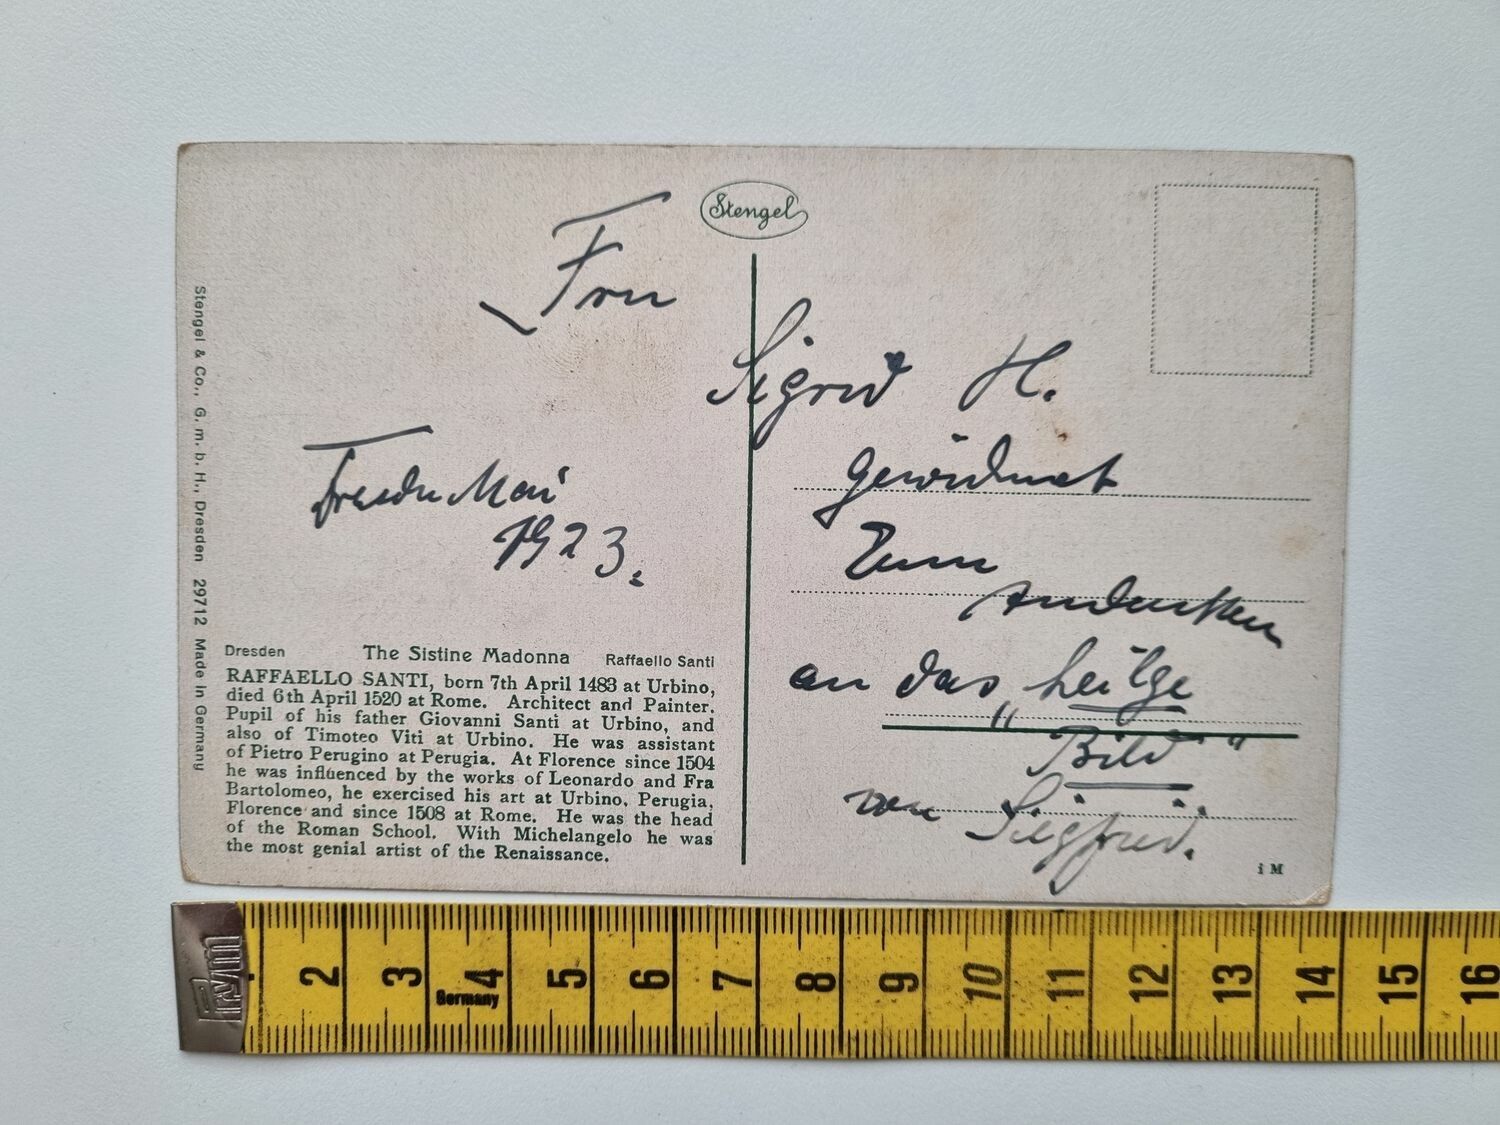 Stengel
Frau
Sigrid H.
gewidmet
Zum
Andenken
an das „heilge
Bild"
von Siegfried.
Dresden Mai
1923.
Stengel & Co., G. m. b. H., Dresden 29712 Made in Germany
Dresden The Sistine Madonna Raffaello Santi
RAFFAELLO SANTI, born 7th April 1483 at Urbino,
died 6th April 1520 at Rome. Architect and Painter.
Pupil of his father Giovanni Santi at Urbino, and
also of Timoteo Viti at Urbino. He was assistant
of Pietro Perugino at Perugia. At Florence since 1504
he was influenced by the works of Leonardo and Fra
Bartolomeo, he exercised his art at Urbino, Perugia,
Florence and since 1508 at Rome. He was the head
of the Roman School. With Michelangelo he was
the most genial artist of the Renaissance.
i M
Prym
2 3 4 5 6 7 8 9 10 11 12 13 14 15 16
Germany